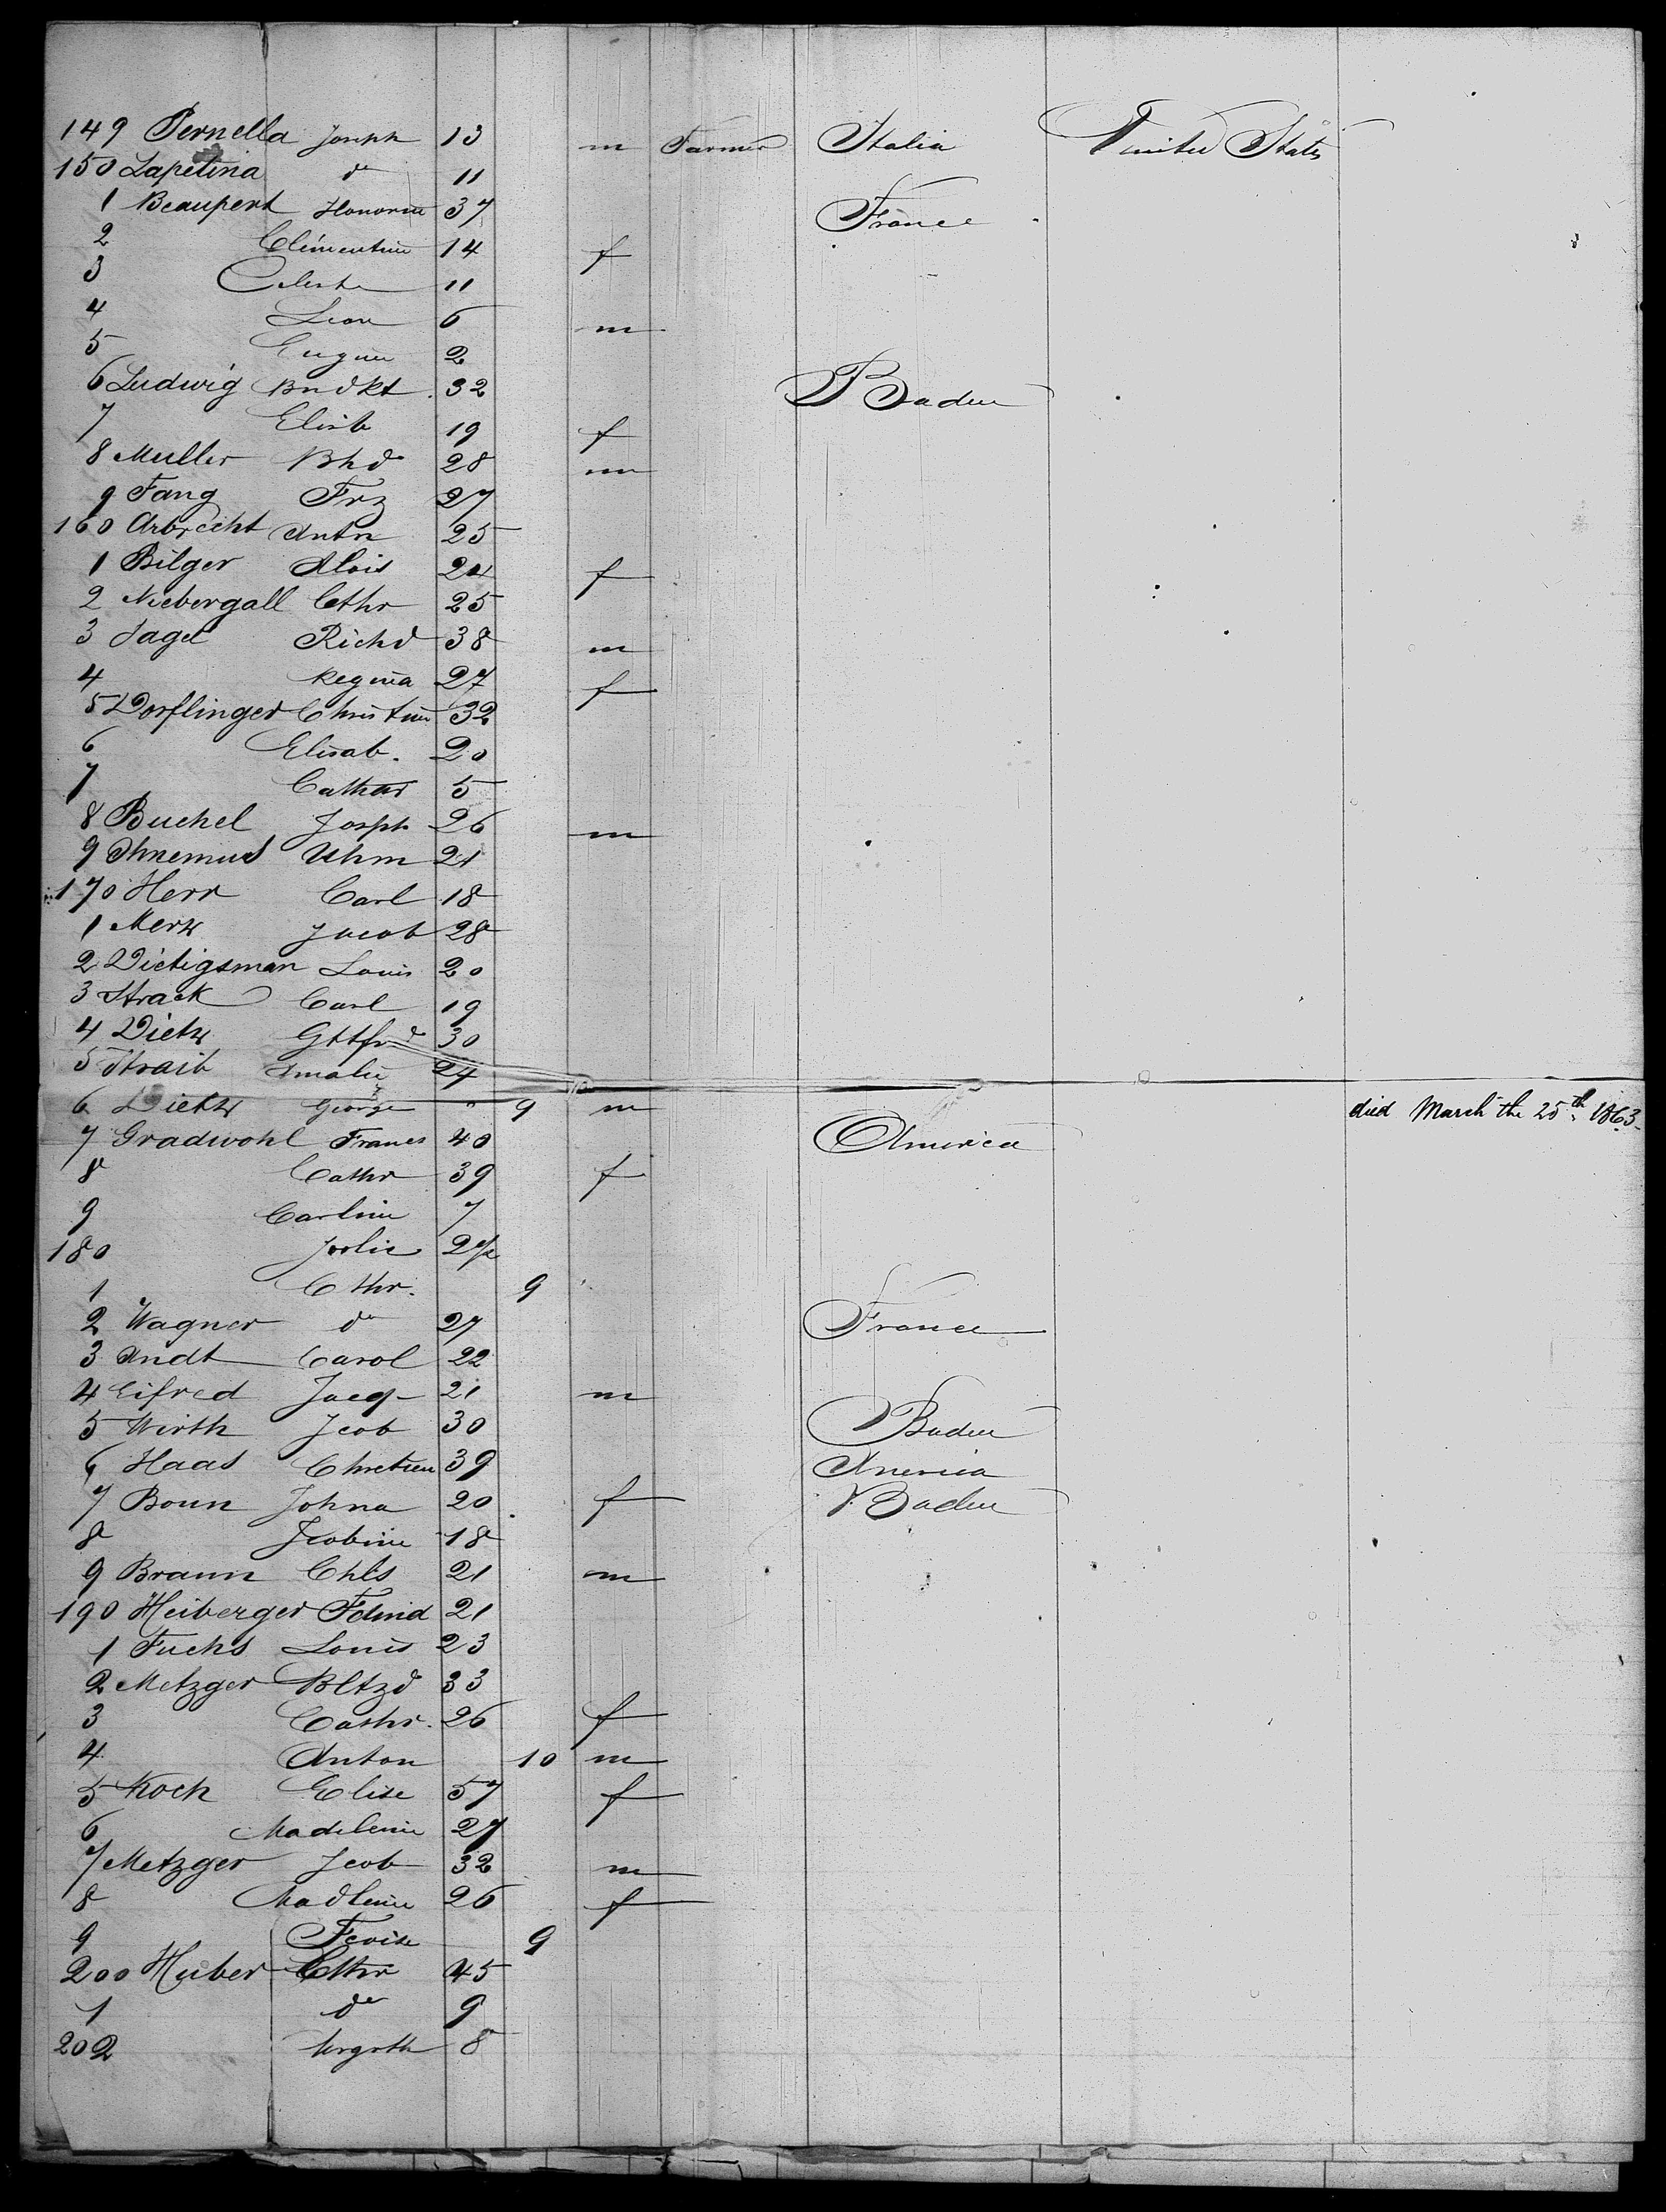 149 Pernella Joseph 13 m Farmer Italia United States
150 Lapetina do 11
1 Beaupert Honorine 37 France
2 Clémentine 14 f
3 Celeste 11
4 Leon 6 m
5 Eugene 2
6 Ludwig Bndkt. 32 Baden
7 Elisb 19 f
8 Muller Bhd 28 m
9 Fang Frz 27
160 Arbrecht Antn 25
1 Bilger Alois 24 f
2 Niebergall Cthr 25
3 Jagel Richd 38 m
4 Regina 27 f
5 Dorflinger Christine 32
6 Elisab. 20
7 Cathar 5
8 Buchel Josph 26 m
9 Ihnemus Uhm 21
170 Herr Carl 18
1 Merz Jacob 28
2 Dietigsman Louis 20
3 Strack Carl 19
4 Dietz Gttfrd 30
5 Straib Amalie 24
6 Dietz George " 9 m died March the 25th 1863
7 Gradwohl Francs 40 America
8 Cathr 39 f
9 Carline 7
180 2 1/2
1 Cthr. 9
2 Wagner do 27 France
3 Andt Carol 22
4 Eifred Jacq 21 m
5 Wirth Jcob 30 Baden
6 Haas Chretien 39 America
7 Boun Johna 20 f Baden
8 Jcobine 18
9 Braun Chls 21 m
190 Heiberger Fdnid 21
1 Fuchs Louis 23
2 Metzger Bltzd 33
3 Cathr. 26 f
4 Anton 10 m
5 Koch Elise 57 f
6 Madeleine 27
7 Metzger Jcob 32 m
8 Madleine 26 f
9 9
200 Huber Cthr 45
1 do 9
202 Mrgrth 8